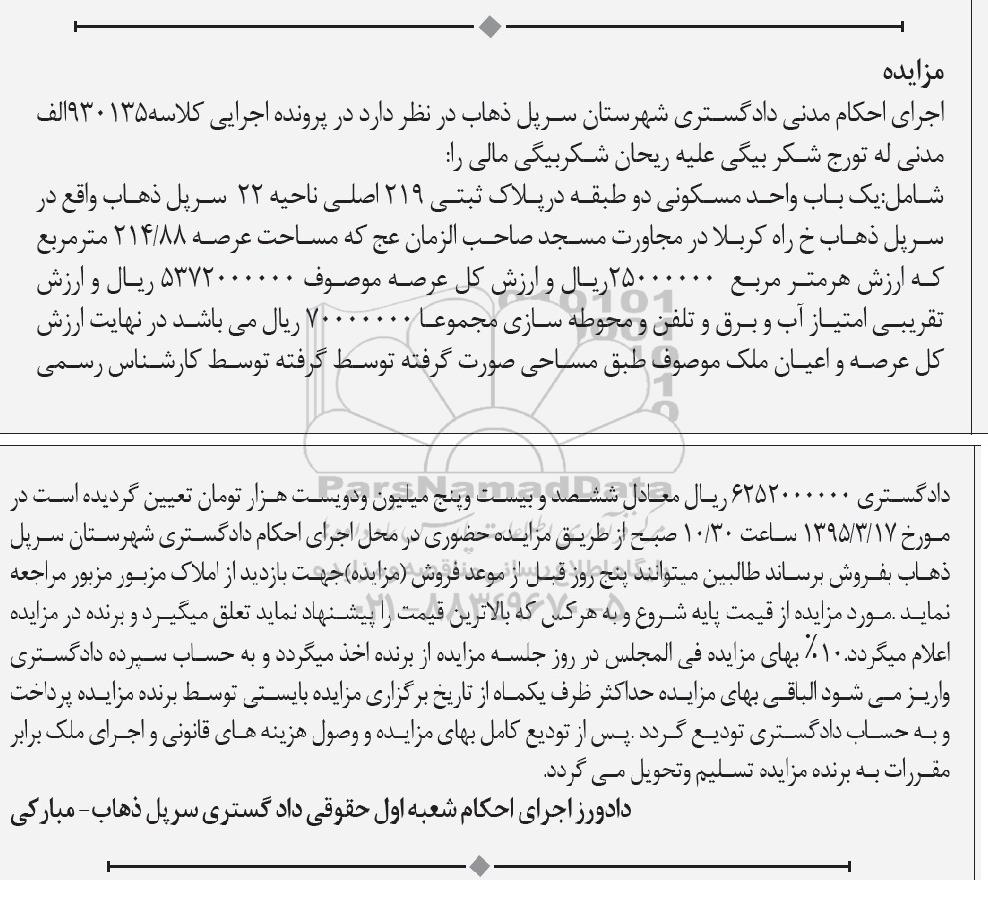 مزایده
اجرای احکام مدنی دادگستری شهرستان سرپل ذهاب در نظر دارد در پرونده اجرایی کلاسه۹۳۰۱۳۵الف
مدنی له تورج شکر بیگی علیه ریحان شکربیگی مالی را:
شامل:یک باب واحد مسکونی دو طبقه درپلاک ثبتی ۲۱۹ اصلی ناحیه ۲۲ سرپل ذهاب واقع در
سرپل ذهاب خ راه کربلا در مجاورت مسجد صاحب الزمان عج که مساحت عرصه ۲۱۴/۸۸ مترمربع
که ارزش هرمتر مربع ۲۵۰۰۰۰۰۰ریال و ارزش کل عرصه موصوف ۵۳۷۲۰۰۰۰۰۰ ریال و ارزش
تقریبی امتیاز آب و برق و تلفن و محوطه سازی مجموعا ۷۰۰۰۰۰۰۰ ریال می باشد در نهایت ارزش
کل عرصه و اعیان ملک موصوف طبق مساحی صورت گرفته توسط گرفته توسط کارشناس رسمی
دادگستری ۶۲۵۲۰۰۰۰۰۰ ریال معادل ششصد و بیست وپنج میلیون ودویست هزار تومان تعیین گردیده است در
مورخ ۱۳۹۵/۳/۱۷ ساعت ۱۰/۳۰ صبح از طریق مزایده حضوری در محل اجرای احکام دادگستری شهرستان سرپل
ذهاب بفروش برساند طالبین میتوانند پنج روز قبل از موعد فروش (مزایده)جهت بازدید از املاک مزبور مزبور مراجعه
نماید .مورد مزایده از قیمت پایه شروع و به هرکس که بالاترین قیمت را پیشنهاد نماید تعلق میگیرد و برنده در مزایده
اعلام میگردد.۱۰٪ بهای مزایده فی المجلس در روز جلسه مزایده از برنده اخذ میگردد و به حساب سپرده دادگستری
واریز می شود الباقی بهای مزایده حداکثر ظرف یکماه از تاریخ برگزاری مزایده بایستی توسط برنده مزایده پرداخت
و به حساب دادگستری تودیع گردد .پس از تودیع کامل بهای مزایده و وصول هزینه های قانونی و اجرای ملک برابر
مقررات به برنده مزایده تسلیم وتحویل می گردد.
دادورز اجرای احکام شعبه اول حقوقی داد گستری سرپل ذهاب- مبارکی
ParsNamadData
۰۲۱-۸۸۳۴۹۶۷۰-۵